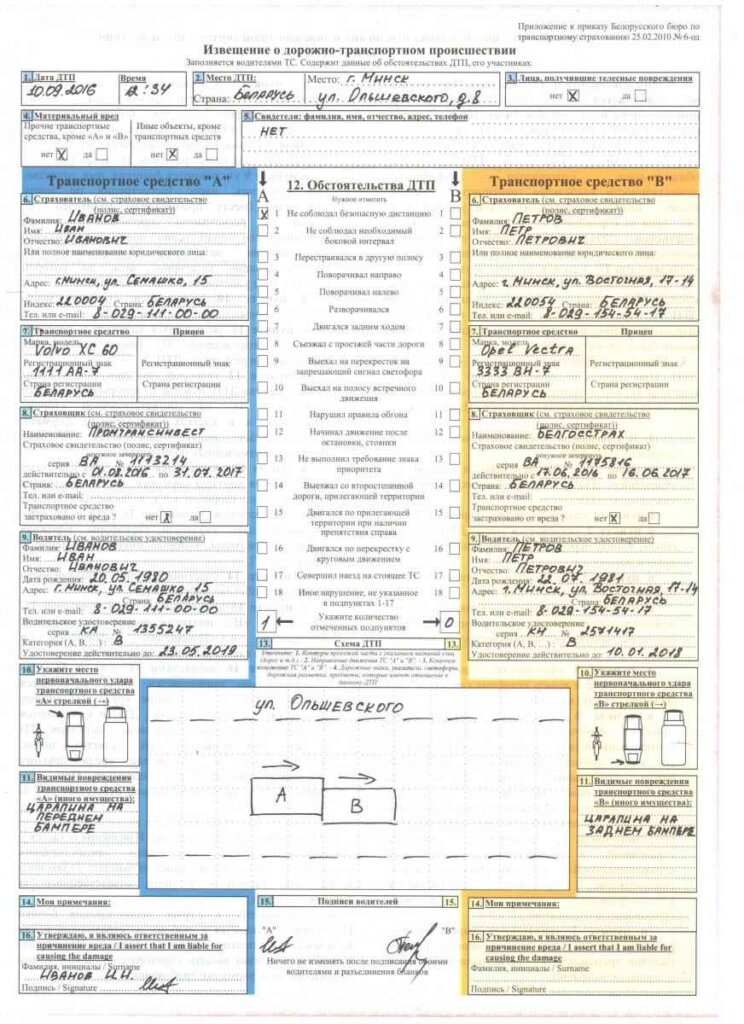 Приложение к приказу Белорусского бюро по
транспортному страхованию 25.02.2010 № 6-од
Извещение о дорожно-транспортном происшествии
Заполняется водителями ТС. Содержит данные об обстоятельствах ДТП, его участниках.
1. Дата ДТП Время
10.09.2016 12:34
2. Место ДТП: Место: г. Минск
Страна: Беларусь ул. Ольшевского, д.8
3. Лица, получившие телесные повреждения
нет X да
4. Материальный вред
Прочие транспортные средства, кроме «А» и «В»
нет X да
Иные объекты, кроме транспортных средств
нет X да
5. Свидетели: фамилия, имя, отчество, адрес, телефон
НЕТ
Транспортное средство "А"
6. Страхователь (см. страховое свидетельство
(полис, сертификат))
Фамилия: ИВАНОВ
Имя: ИВАН
Отчество: ИВАНОВИЧ
Или полное наименование юридического лица:
Адрес: г. Минск, ул. Семашко, 15
Индекс: 220004 Страна: БЕЛАРУСЬ
Тел. или e-mail: 8-029-111-00-00
7. Транспортное средство Прицеп
Марка, модель
Volvo XC 60
Регистрационный знак Регистрационный знак
1111 АА-7
Страна регистрации Страна регистрации
БЕЛАРУСЬ
8. Страховщик (см. страховое свидетельство
(полис, сертификат))
Наименование: ПРОМТРАНСИНВЕСТ
Страховое свидетельство (полис, сертификат)
ненужное зачеркнуть
серия ВА № 1193214
действительно с 01.08.2016 по 31.07.2017
Страна: БЕЛАРУСЬ
Тел. или e-mail:
Транспортное средство
застраховано от вреда ? нет X да
9. Водитель (см. водительское удостоверение)
Фамилия: ИВАНОВ
Имя: ИВАН
Отчество: ИВАНОВИЧ
Дата рождения: 20.05.1980
Адрес: г. Минск, ул. Семашко 15
Страна: БЕЛАРУСЬ
Тел. или e-mail: 8-029-111-00-00
Водительское удостоверение
серия КА № 1355247
Категория (А, В, ...) : В
Удостоверение действительно до: 23.05.2019
10. Укажите место
первоначального удара
транспортного средства
«А» стрелкой (→)
11. Видимые повреждения
транспортного средства
«А» (иного имущества):
ЦАРАПИНА НА
ПЕРЕДНЕМ
БАМПЕРЕ
14. Мои примечания:
16. Утверждаю, я являюсь ответственным за
причинение вреда / I assert that I am liable for
causing the damage
Фамилия, инициалы / Surname
ИВАНОВ И.И.
Подпись / Signature
12. Обстоятельства ДТП
А Нужное отметить В
X 1 Не соблюдал безопасную дистанцию 1
2 Не соблюдал необходимый 2
боковой интервал
3 Перестраивался в другую полосу 3
4 Поворачивал направо 4
5 Поворачивал налево 5
6 Разворачивался 6
7 Двигался задним ходом 7
8 Съезжал с проезжей части дороги 8
9 Выехал на перекресток на 9
запрещающий сигнал светофора
10 Выехал на полосу встречного 10
движения
11 Нарушил правила обгона 11
12 Начинал движение после 12
остановки, стоянки
13 Не выполнил требование знака 13
приоритета
14 Выезжал со второстепенной 14
дороги, прилегающей территории
15 Двигался по прилегающей 15
территории при наличии
препятствия справа
16 Двигался по перекрестку с 16
круговым движением
17 Совершил наезд на стоящее ТС 17
18 Иное нарушение, не указанное 18
в подпунктах 1-17
1 ← Укажите количество → 0
отмеченных подпунктов
13. Схема ДТП 13.
Уточните: 1. Контуры проезжей части с указанием названий улиц
(дорог и т.п.) - 2. Направления движения ТС "А" и "В" - 3. Конечное
положение ТС "А" и "В" - 4. Дорожные знаки, указатели, светофоры,
дорожная разметка, предметы, которые имеют отношение к
данному ДТП
ул. Ольшевского
А В
15. Подписи водителей 15.
"А" "В"
Ничего не изменять после подписания обоими
водителями и разъединения бланков
Транспортное средство "В"
6. Страхователь (см. страховое свидетельство
(полис, сертификат))
Фамилия: ПЕТРОВ
Имя: ПЕТР
Отчество: ПЕТРОВИЧ
Или полное наименование юридического лица:
Адрес: г. Минск, ул. Восточная, 17-14
Индекс: 220054 Страна: БЕЛАРУСЬ
Тел. или e-mail: 8-029-154-54-17
7. Транспортное средство Прицеп
Марка, модель
Opel Vectra
Регистрационный знак Регистрационный знак
3333 ВН-7
Страна регистрации Страна регистрации
БЕЛАРУСЬ
8. Страховщик (см. страховое свидетельство
(полис, сертификат))
Наименование: БЕЛГОССТРАХ
Страховое свидетельство (полис, сертификат)
ненужное зачеркнуть
серия ВА № 1175816
действительно с 17.06.2016 по 16.06.2017
Страна: БЕЛАРУСЬ
Тел. или e-mail:
Транспортное средство
застраховано от вреда ? нет X да
9. Водитель (см. водительское удостоверение)
Фамилия: ПЕТРОВ
Имя: ПЕТР
Отчество: ПЕТРОВИЧ
Дата рождения: 22.07.1981
Адрес: г. Минск, ул. Восточная, 17-14
Страна: БЕЛАРУСЬ
Тел. или e-mail: 8-029-154-54-17
Водительское удостоверение
серия КН № 2571417
Категория (А, В, ...) : В
Удостоверение действительно до: 10.01.2018
10. Укажите место
первоначального удара
транспортного средства
«В» стрелкой (→)
11. Видимые повреждения
транспортного средства
«В» (иного имущества):
ЦАРАПИНА НА
ЗАДНЕМ БАМПЕРЕ
14. Мои примечания:
16. Утверждаю, я являюсь ответственным за
причинение вреда / I assert that I am liable for
causing the damage
Фамилия, инициалы / Surname
Подпись / Signature